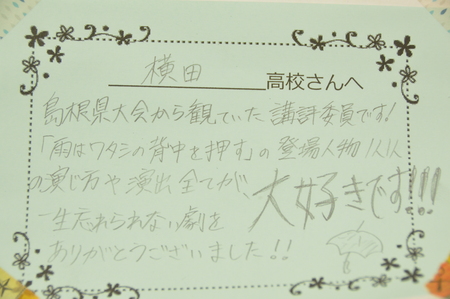 横田高校さんへ
島根県大会から観ていた講評委員です!
「雨はワタシの背中を押す」の登場人物1人1人
の演じ方や演出全てが、大好きです!!!
一生忘れられない劇を
ありがとうございました!!